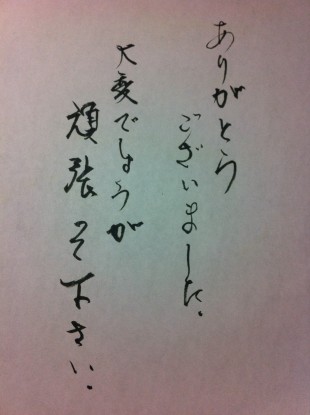 ありがとう
ございました。
大変でしょうが
頑張って下さい。